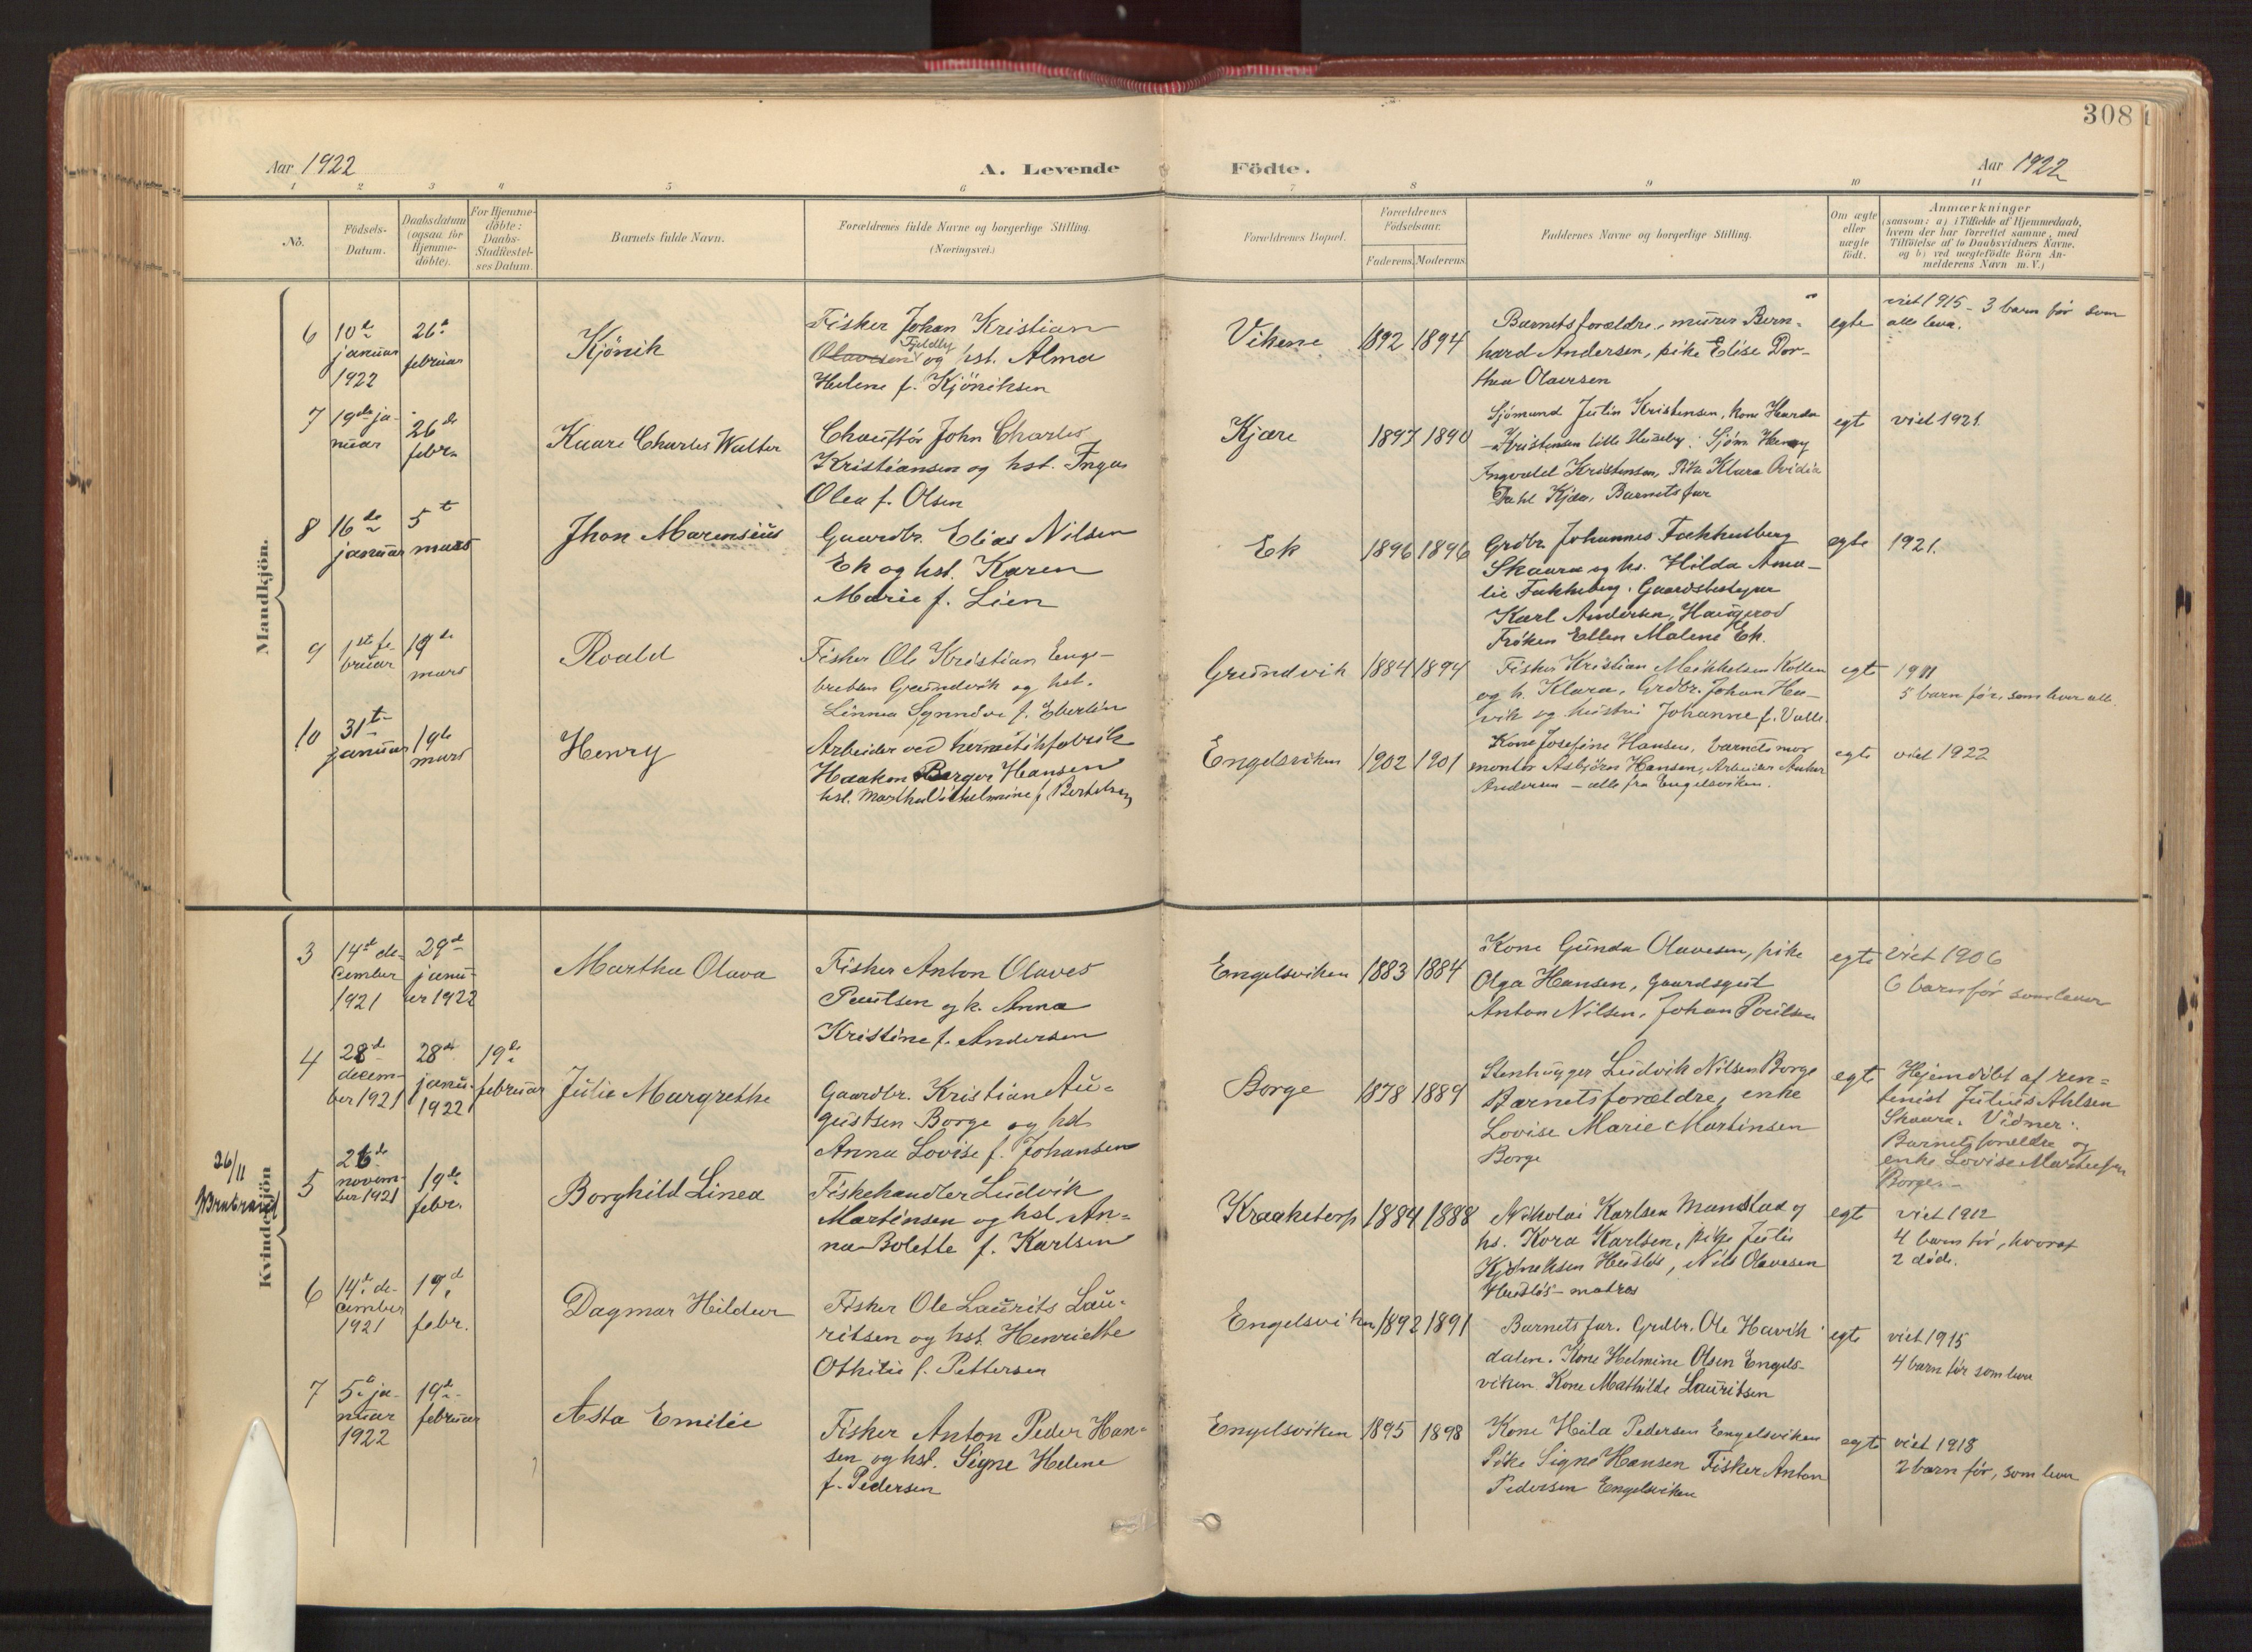 308
Aar 1922
A. Levende
Födte.
Aar 1922
1 2 3 4 5 6 7 8 9 10 11
No.
Födsels-
Datum.
Daabsdatum
(ogsaa for
Hjemme-
döbte).
For Hjemme-
döbte:
Daabs-
Stadfæstel-
ses Datum.
Barnets fulde Navn.
Forældrenes fulde Navne og borgerlige Stilling.
(Næringsvei.)
Forældrenes Bopæl.
Forældrenes
Födselsaar.
Faderens. Moderens.
Faddernes Navne og borgerlige Stilling.
Om ægte
eller
uægte
födt.
Anmærkninger
(saasom: a) i Tilfælde af Hjemmedaab,
hvem der har forrettet samme, med
Tilföielse af to Daabsvidners Navne,
og b) ved uegtefödte Börn An-
melderens Navn m. V.)
Mandkjön.
6
10de
januar
1922
26de
februar
Kjönik
Fisker Johan Kristian
Fjeldly
Olavesen og hst. Alma
Helene f. Kjöniksen
Vikene
1892
1894
Barnets forældre, murer Bern-
hard Andersen, pike Elise Dor-
thea Olavsen
egte
viet 1915 - 3 barn før som
alle leva.
7
19de ja-
nuar
26de
febr.
Kaare Charles Walter
Chauffør John Charles
Kristiansen og hst. Inga
Olea f. Olsen
Kjære
1897
1890
Sjömand Julin Kristensen, kone Harda
Kristensen lille Huseby. Sjöm Henry
Ingvald Kristensen, Pike Klara Ovidia
Dahl Kjær, Barnets far
egt
viet 1921.
8
16de
januar
5t
mars
Jhon Marensius
Gaardbr. Elias Nilsen
Ek og hst. Karen
Marie f. Lien
Ek
1896
1896
Grdbr. Johannes Fokkusberg
Skaara og hs. Hilda Ama-
lie Gaardsbestyrer
Karl Andersen, Haugerod
Frøken Ellen Malene Ek.
egte
1921.
9
1ste fe-
bruar
19de
mars
Roald
Fisker Ole Kristian Enge-
bretsen Grundvik og hst.
Linnea Synnöve f. Eberlin
Grundvik
1884
1894
Fisker Kristian Mikkelsen Kollen
og h. Klara, Grdbr. Johan Ha-
vik og hustru Johanne f. Valle.
egt
1911
5 barn før, som lever alle.
10
31te
januar
19de
mars
Henry
Arbeider ved hermetikfabrik
Haakon Birger Hansen
hst. Martha Vilhelmine f. Bertelsen
Engelsviken
1902
1901
Kone Josefine Hansen, barnets mor
montör Asbjörn Hansen, Arbeider Anker
Andersen - alle fra Engelsviken.
egte
viet 1922
Kvindekjön
3
14de de-
cember
1921
29de
janu-
ar 1922
Martha Olava
Fisker Anton Olaves
Paulsen og k. Anna
Kristine f. Andersen
Engelsviken
1883
1884
Kone Gunda Olavesen, pike
Olga Hansen, gaardsgut
Anton Nilsen, Johan Poulsen
egte
viet 1906
6 barn før som lever
4
28de
decem-
ber 1921
28de
janu-
1922
19de
februar
Julie Margrethe
Gaardbr. Kristian Au-
gustsen Borge og hst
Anna Lovise f. Johansen
Borge
1878
1889
Stenhugger Ludvik Nilsen Borge
Barnets forældre, enke
Lovise Marie Martinsen
Borge
egte
Hjemdöbt af ren-
tenist Julius Ahlsen
Skaara. Vidner:
Barnets forældre og
enke Lovise Martinsen
Borge.
26/11
5
26de
novem-
ber 1921
19de
febr.
Borghild Linea
Fiskehandler Ludvik
Martinsen og hst. An-
na Bolette f. Karlsen
Kraaketorp
1884
1888
Nikolai Karlsen Manstad og
hs. Kora Karlsen, pike Julie
Kjöneksen Husløs, Nils Olavesen
Husløs - matros
egt
viet 1912
4 barn før, hvoraf
2 döde.
6
14de de-
cember
1921
19de
febr.
Dagmar Hildur
Fisker Ole Laurits Lau-
ritsen og hst. Henriette
Othilie f. Pettersen
Engelsviken
1892
1891
Barnets far. Grdbr. Ole Havik
dalen. Kone Helmine Olsen Engels-
viken Kone Mathilde Lauritsen
egte
viet 1915
4 barn før som leve
7
5te ja-
nuar
1922
19de
februar
Asta Emilie
Fisker Anton Peder Han-
sen og hst. Signe Helene
f. Pedersen
Engelsviken
1895
1898
Kone Hilda Pedersen Engelsviken
Pike Signe Hansen Fisker Anton
Pedersen Engelsviken
egte
viet 1918
2 barn før, som leve